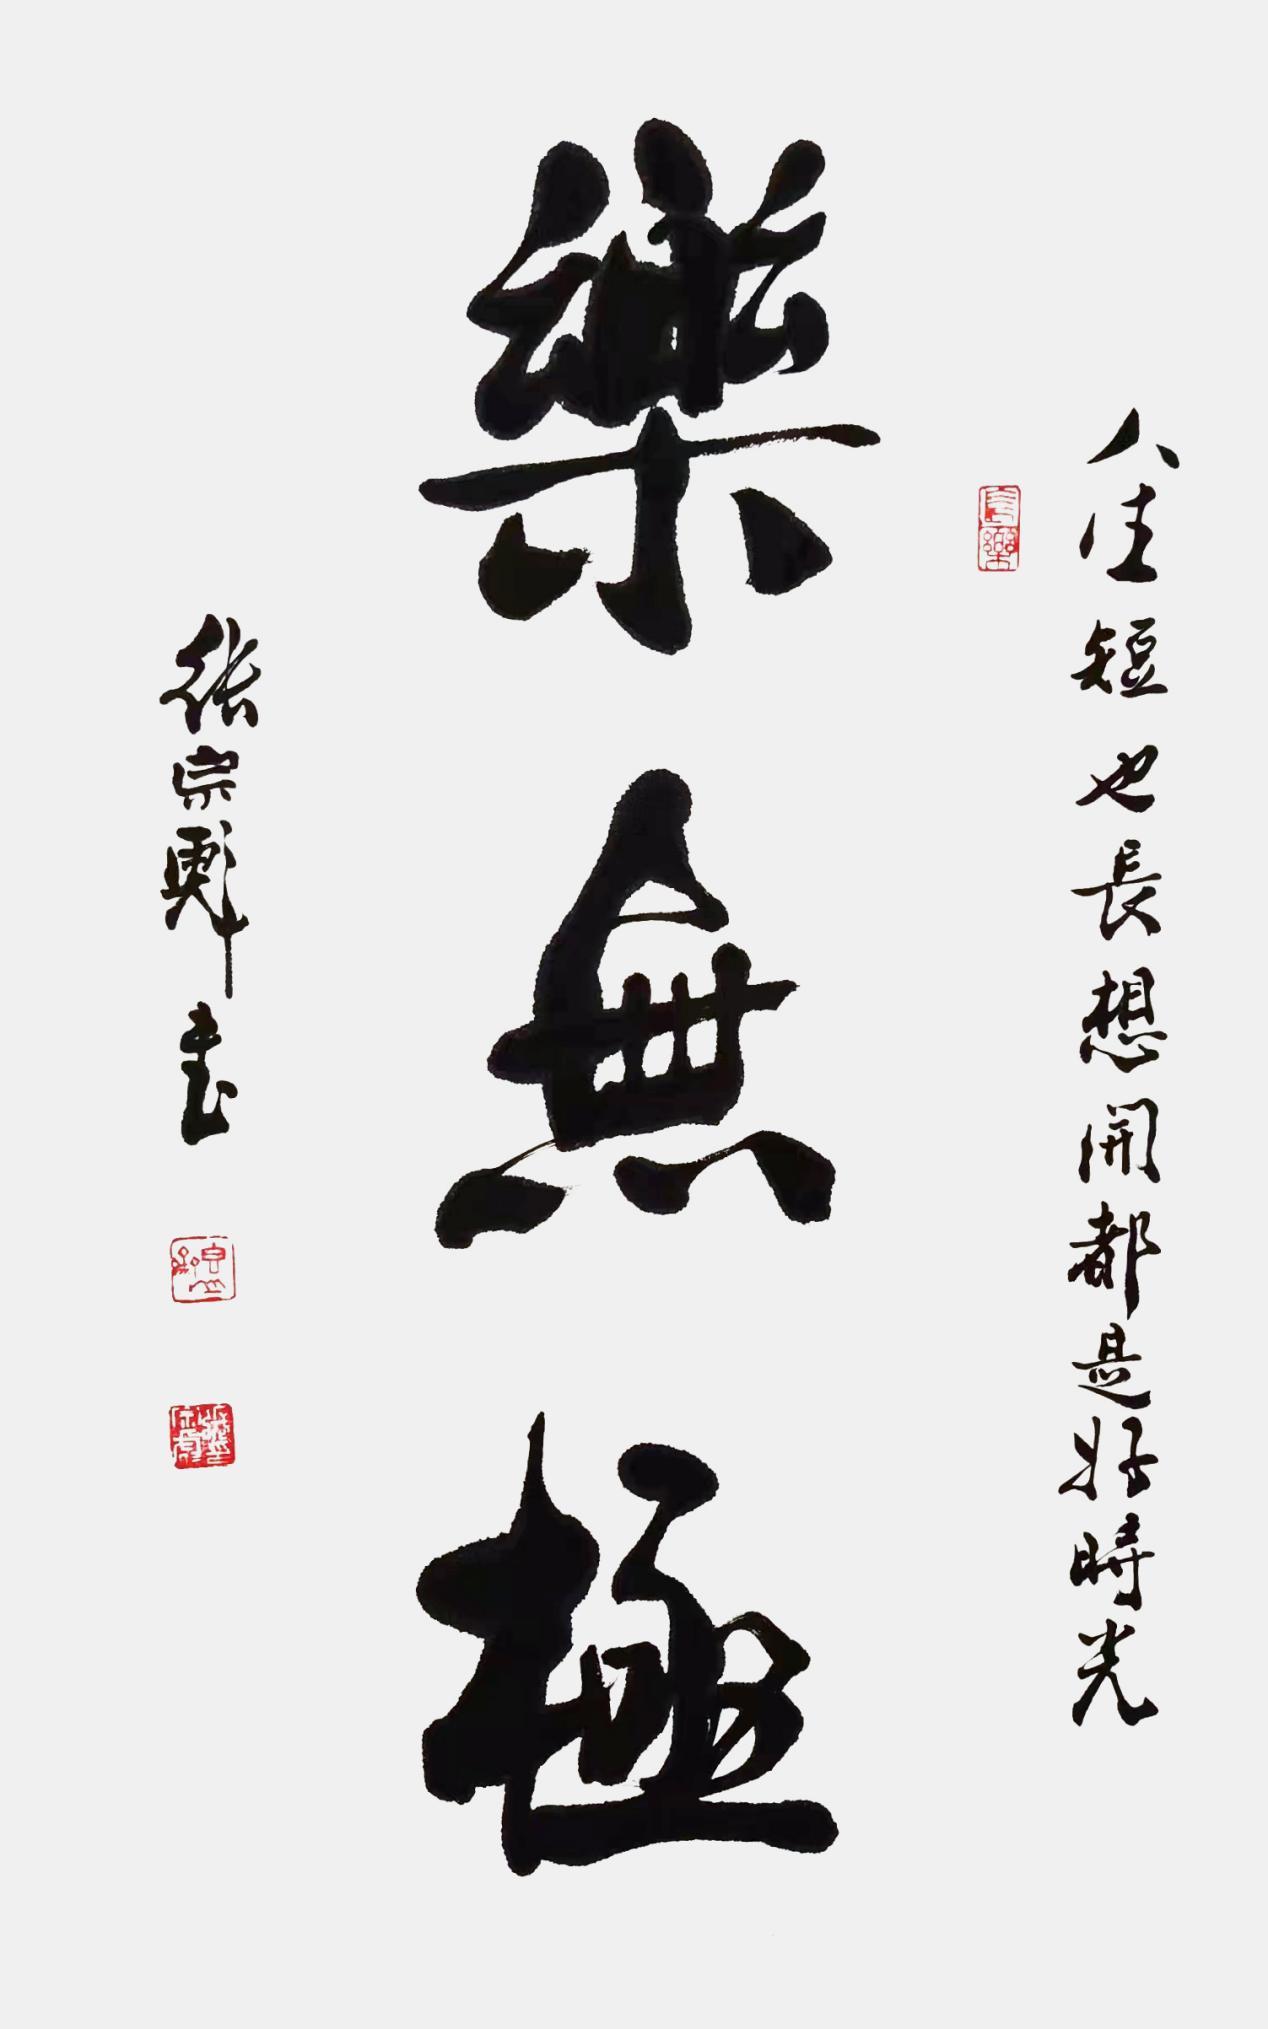 人生短也長想開都是好時光
樂無極
張宗彪書